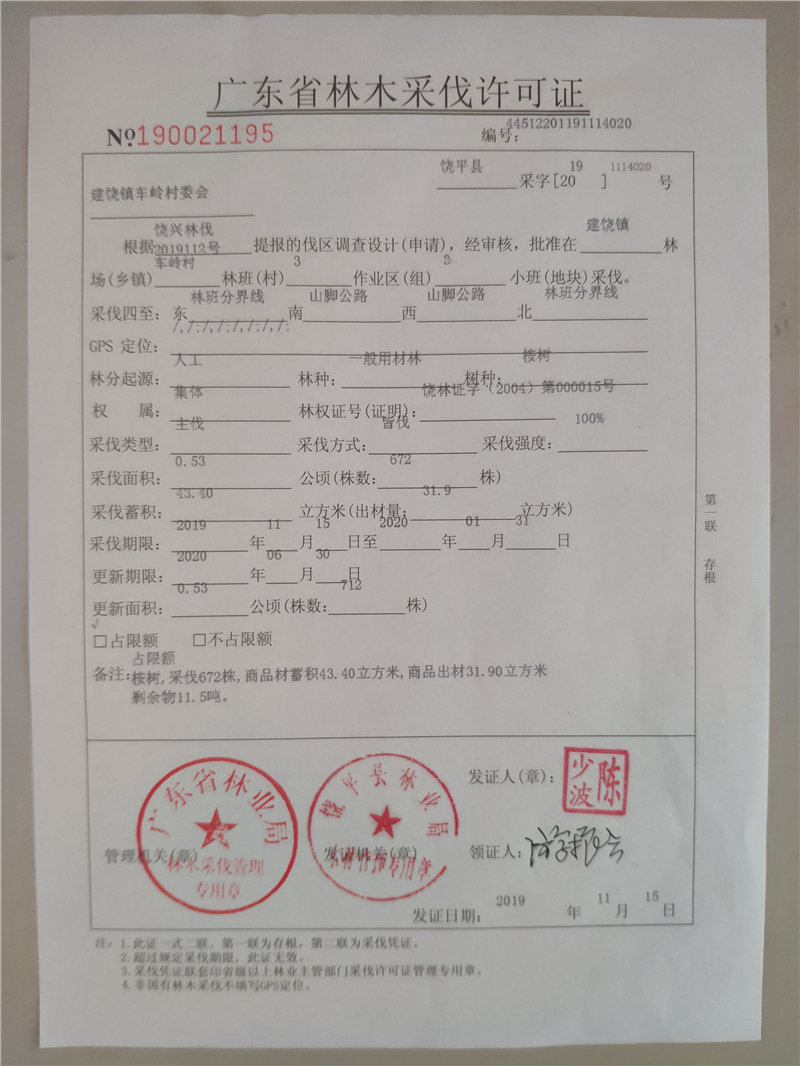 广东省林木采伐许可证
№190021195 编号：44512201191114020
饶平县采字[2019]1114020号
建饶镇车岭村委会
根据饶兴林伐2019112号提报的伐区调查设计(申请)，经审核，批准在建饶镇林
场(乡镇)车岭村林班(村)3作业区(组)3小班(地块)采伐。
采伐四至：东林班分界线南山脚公路西山脚公路北林班分界线
GPS 定位：/,/:/,/:/,/:/,/:
林分起源：人工 林种：一般用材林 树种：桉树
权 属：集体 林权证号(证明)：饶林证字（2004）第000015号
采伐类型：主伐 采伐方式：皆伐 采伐强度：100%
采伐面积：0.53公顷(株数：672株)
采伐蓄积：43.40立方米(出材量：31.9立方米)
采伐期限：2019年11月15日至2020年01月31日
更新期限：2020年06月30日
更新面积：0.53公顷(株数：712株)
√
□占限额 □不占限额
占限额
备注：桉树,采伐672株,商品材蓄积43.40立方米,商品出材31.90立方米
剩余物11.5吨。
第一联 存根
管理机关(章)
广东省林业局
林木采伐管理
专用章
发证机关(章)
饶平县林业局
发证人(章)：陈少波
领证人：
发证日期：2019年11月15日
注：1.此证一式二联，第一联为存根，第二联为采伐凭证。
2.超过规定采伐期限，此证无效。
3.采伐凭证联套印省级以上林业主管部门采伐许可证管理专用章。
4.非国有林木采伐不填写GPS定位。